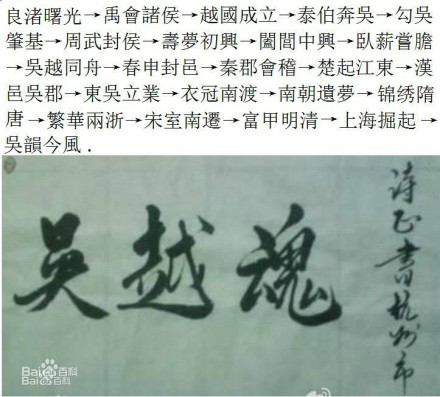 良渚曙光→禹會諸侯→越國成立→泰伯奔吳→勾吳
肇基→周武封侯→壽夢初興→闔閭中興→臥薪嘗膽
→吳越同舟→春申封邑→秦郡會稽→楚起江東→漢
邑吳郡→東吳立業→衣冠南渡→南朝遺夢→锦绣隋
唐→繁華兩浙→宋室南遷→富甲明清→上海掘起→
吳韻今風．
吳越魂
诗正書杭州市
Bai百科
Bai百科